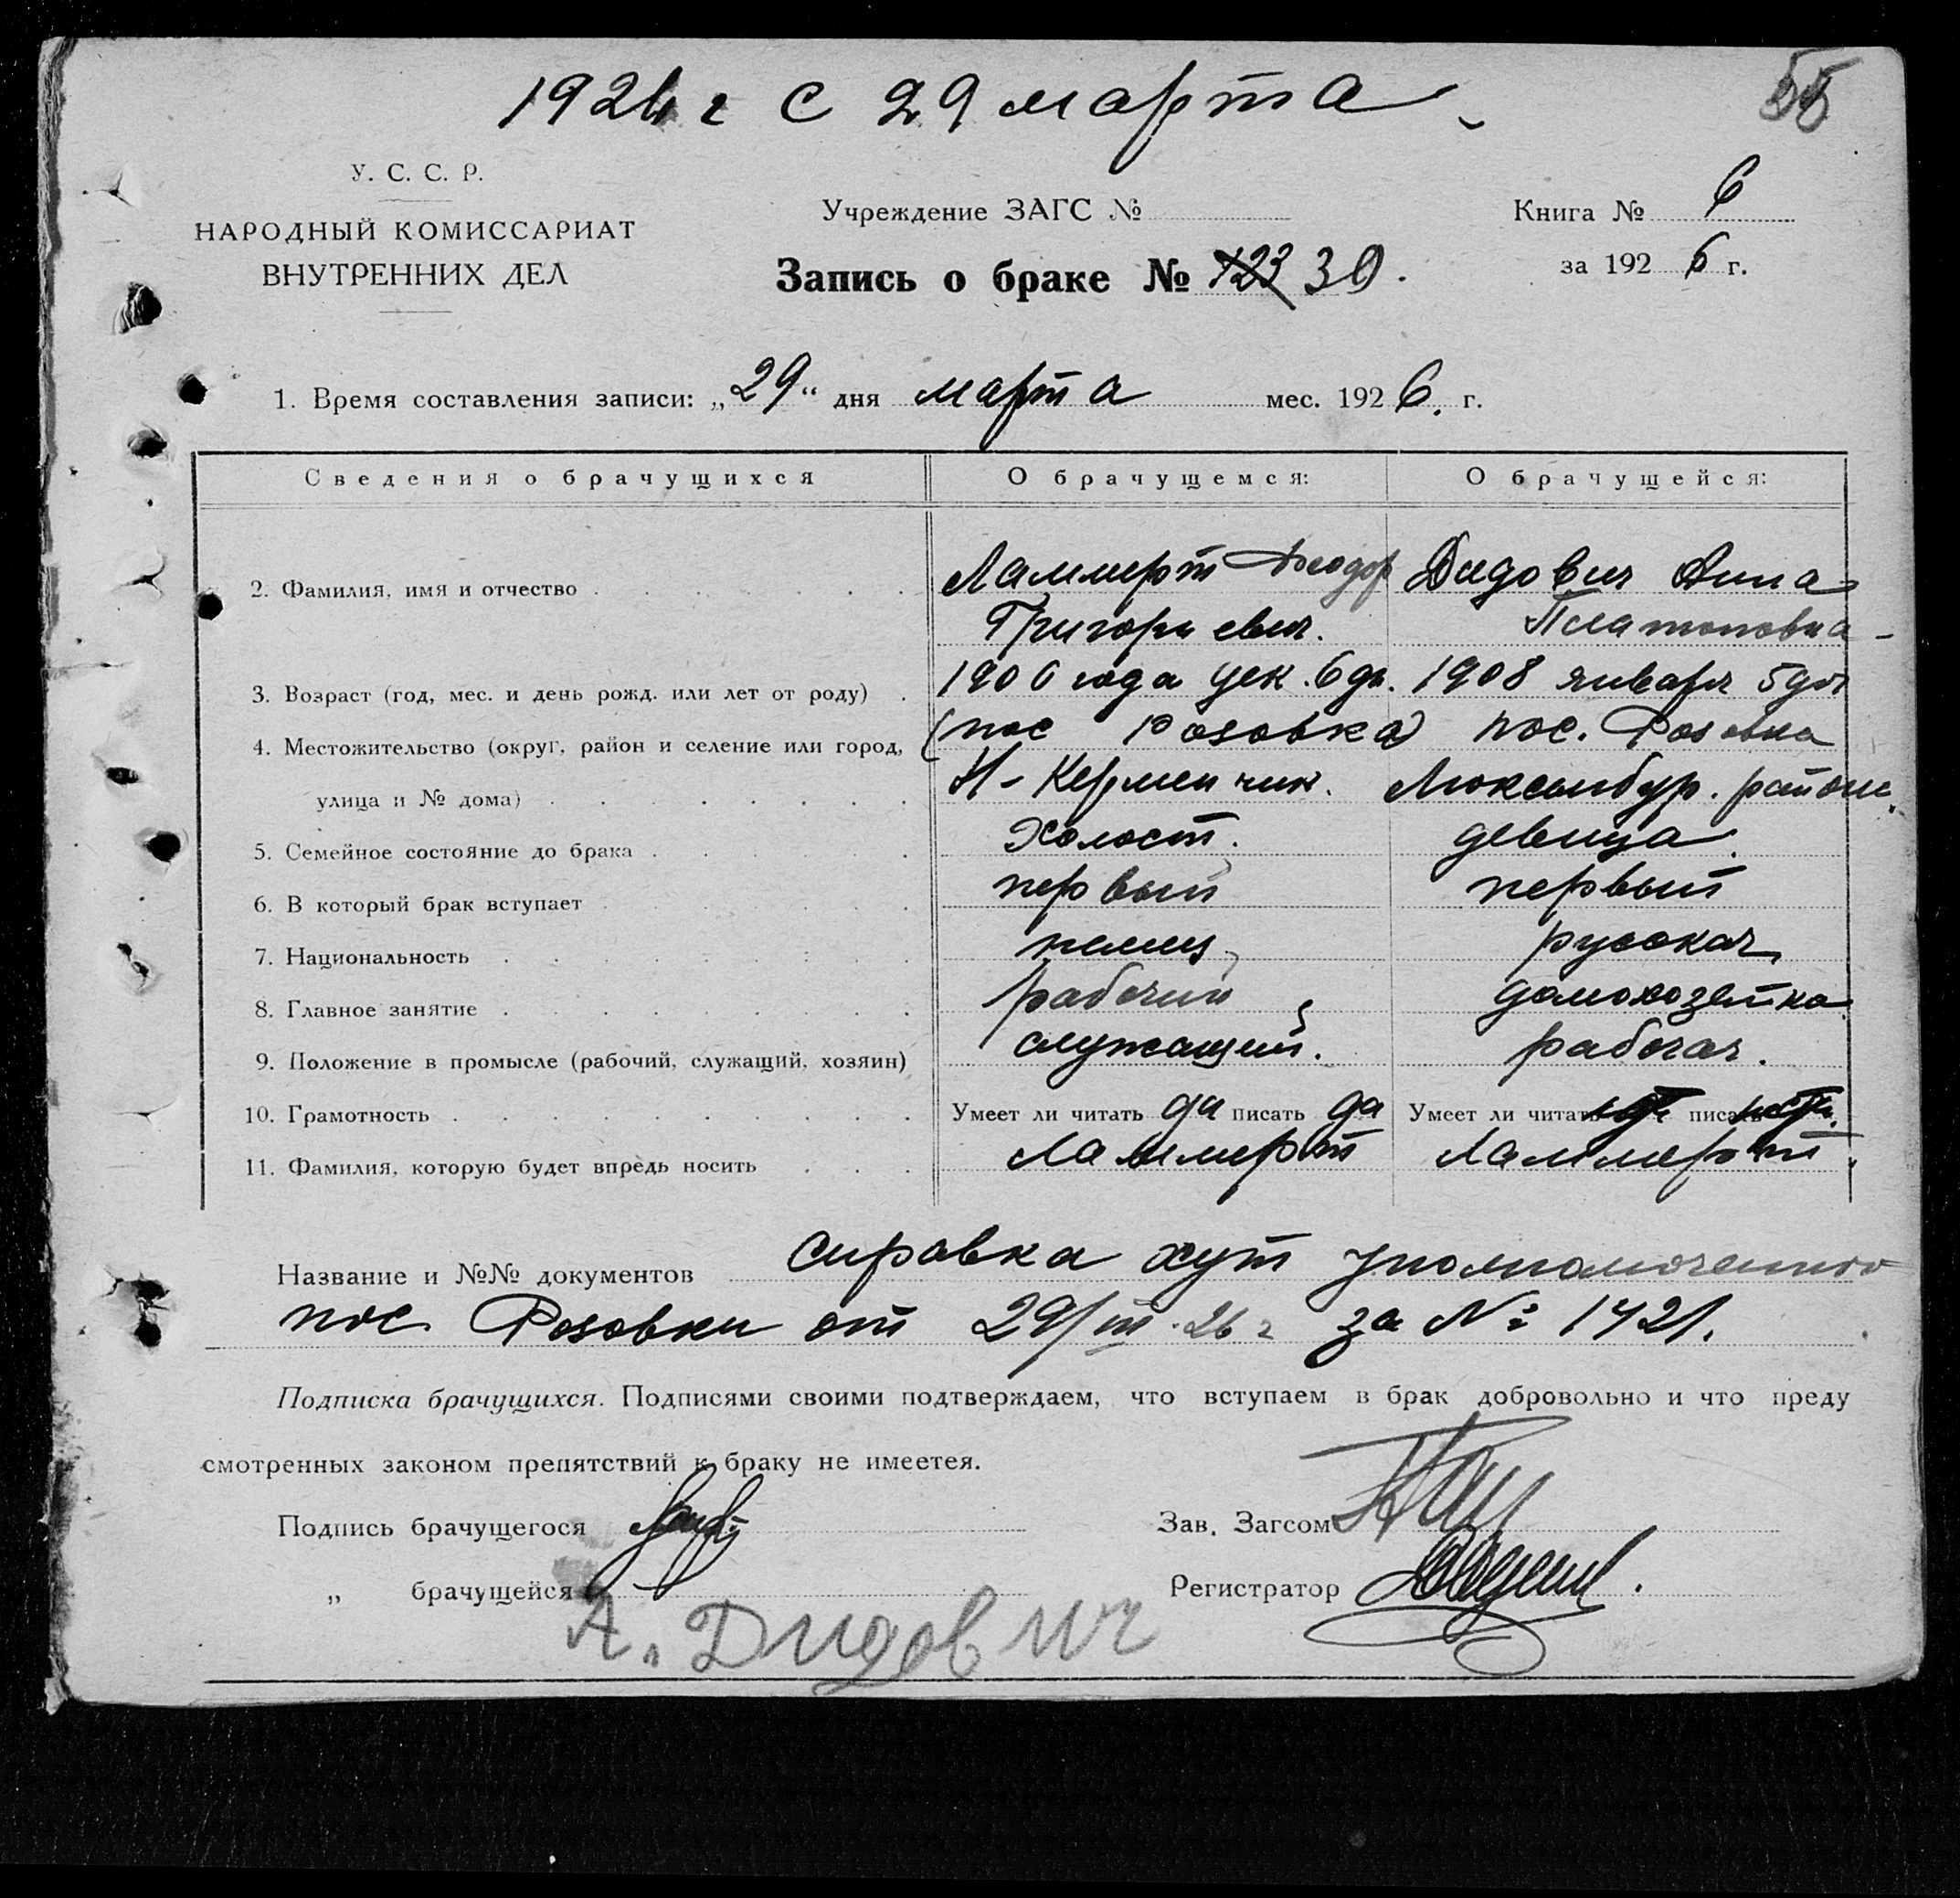 1926 г с 29 марта
55
У. С. С. Р.
НАРОДНЫЙ КОМИССАРИАТ
ВНУТРЕННИХ ДЕЛ
Учреждение ЗАГС №
Книга № 6
за 1926 г.
Запись о браке № 123 30.
1. Время составления записи: „29“ дня марта мес. 1926. г.
Сведения о брачущихся О брачущемся: О брачущейся:
2. Фамилия, имя и отчество Ламмерт Феодор Дидович Анна
Григорьевич. Платоновна
3. Возраст (год, мес. и день рожд. или лет от роду) 1906 года дек. 6 дн. 1908 января 5 дня
4. Местожительство (округ, район и селение или город, (пос Розовка) пос. Розовка
улица и № дома) Н-Керменчик. Люксембур. района
5. Семейное состояние до брака холост. девица.
6. В который брак вступает первый первый
7. Национальность немец русская
8. Главное занятие рабочий домохозяйка
9. Положение в промысле (рабочий, служащий, хозяин) служащий. рабочая.
10. Грамотность Умеет ли читать да писать да Умеет ли читать писать
11. Фамилия, которую будет впредь носить Ламмерт Ламмерт
Название и №№ документов справка хут уполномоченного
пос. Розовки от 29/III-26 г за № 1421.
Подписка брачущихся. Подписями своими подтверждаем, что вступаем в брак добровольно и что преду
смотренных законом препятствий к браку не имеетея.
Подпись брачущегося
Зав. Загсом
„ брачущейся
Регистратор
А. Дидович